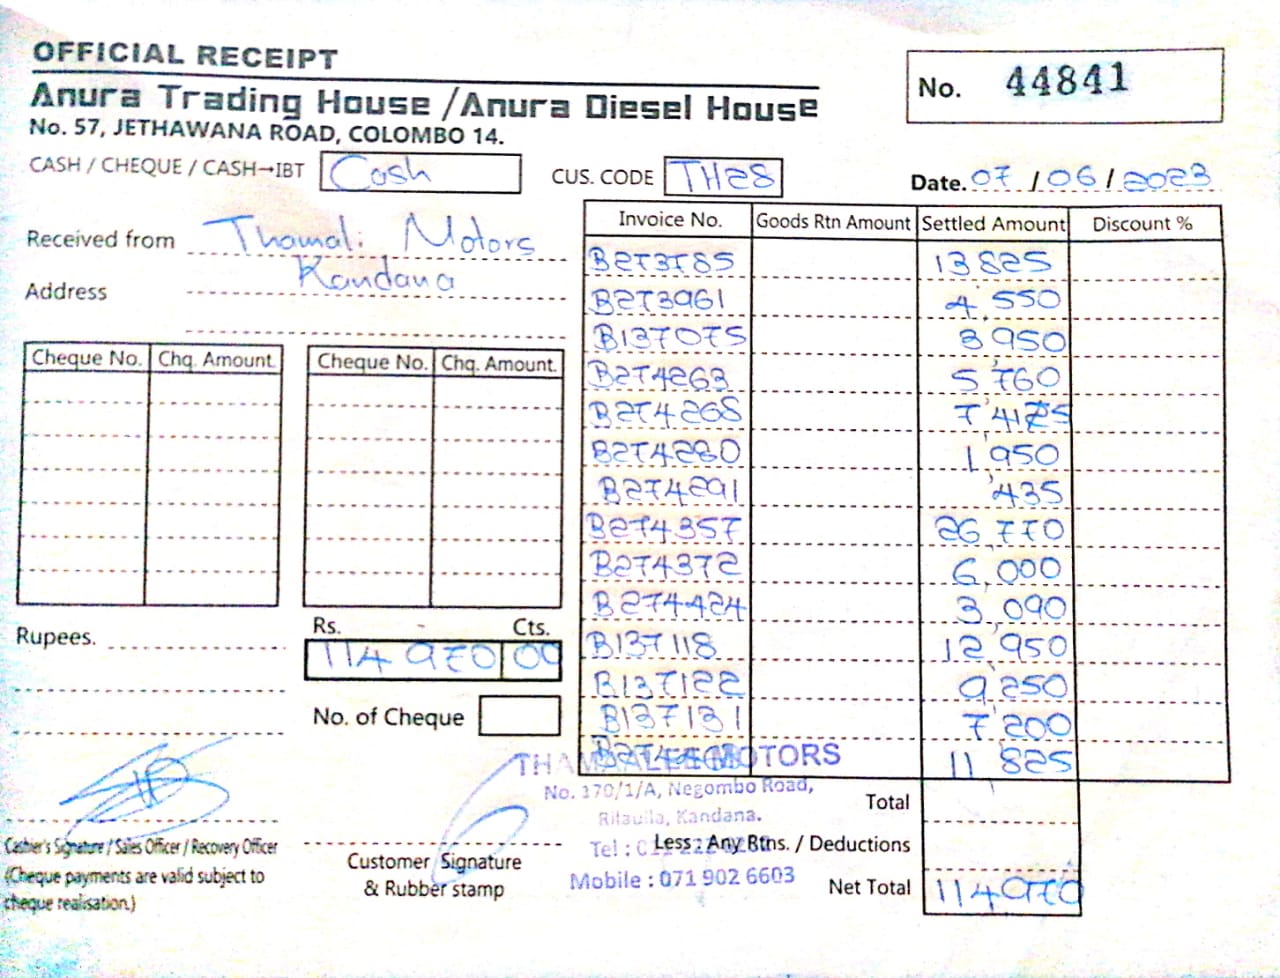 OFFICIAL RECEIPT
No. 44841
Anura Trading House /Anura Diesel House
No. 57, JETHAWANA ROAD, COLOMBO 14.
CASH / CHEQUE / CASH→IBT Cash
CUS. CODE TH28
Date. 07 / 06 / 2023
Received from Thamali Motors
Address Kandana
Cheque No. Chq. Amount. Cheque No. Chq. Amount.
Rupees.
Rs. Cts.
114 970 00
No. of Cheque
Invoice No. Goods Rtn Amount Settled Amount Discount %
B273785 13 825
B273961 4,550
B137075 3,950
B274263 5,760
B274268
B274280 1,950
B274291 435
B274357 26,770
B274372 6,000
B274424 3,090
B137118 12,950
B137122 9,250
B137131 7,200
11 825
Total
Less : Any Rtns. / Deductions
Net Total 114970
THAMALEE MOTORS
No. 170/1/A, Negombo Road,
Rilaulla, Kandana.
Tel :
Mobile : 071 902 6603
Cashier's Signature / Sales Officer / Recovery Officer
(Cheque payments are valid subject to
cheque realisation.)
Customer Signature
& Rubber stamp